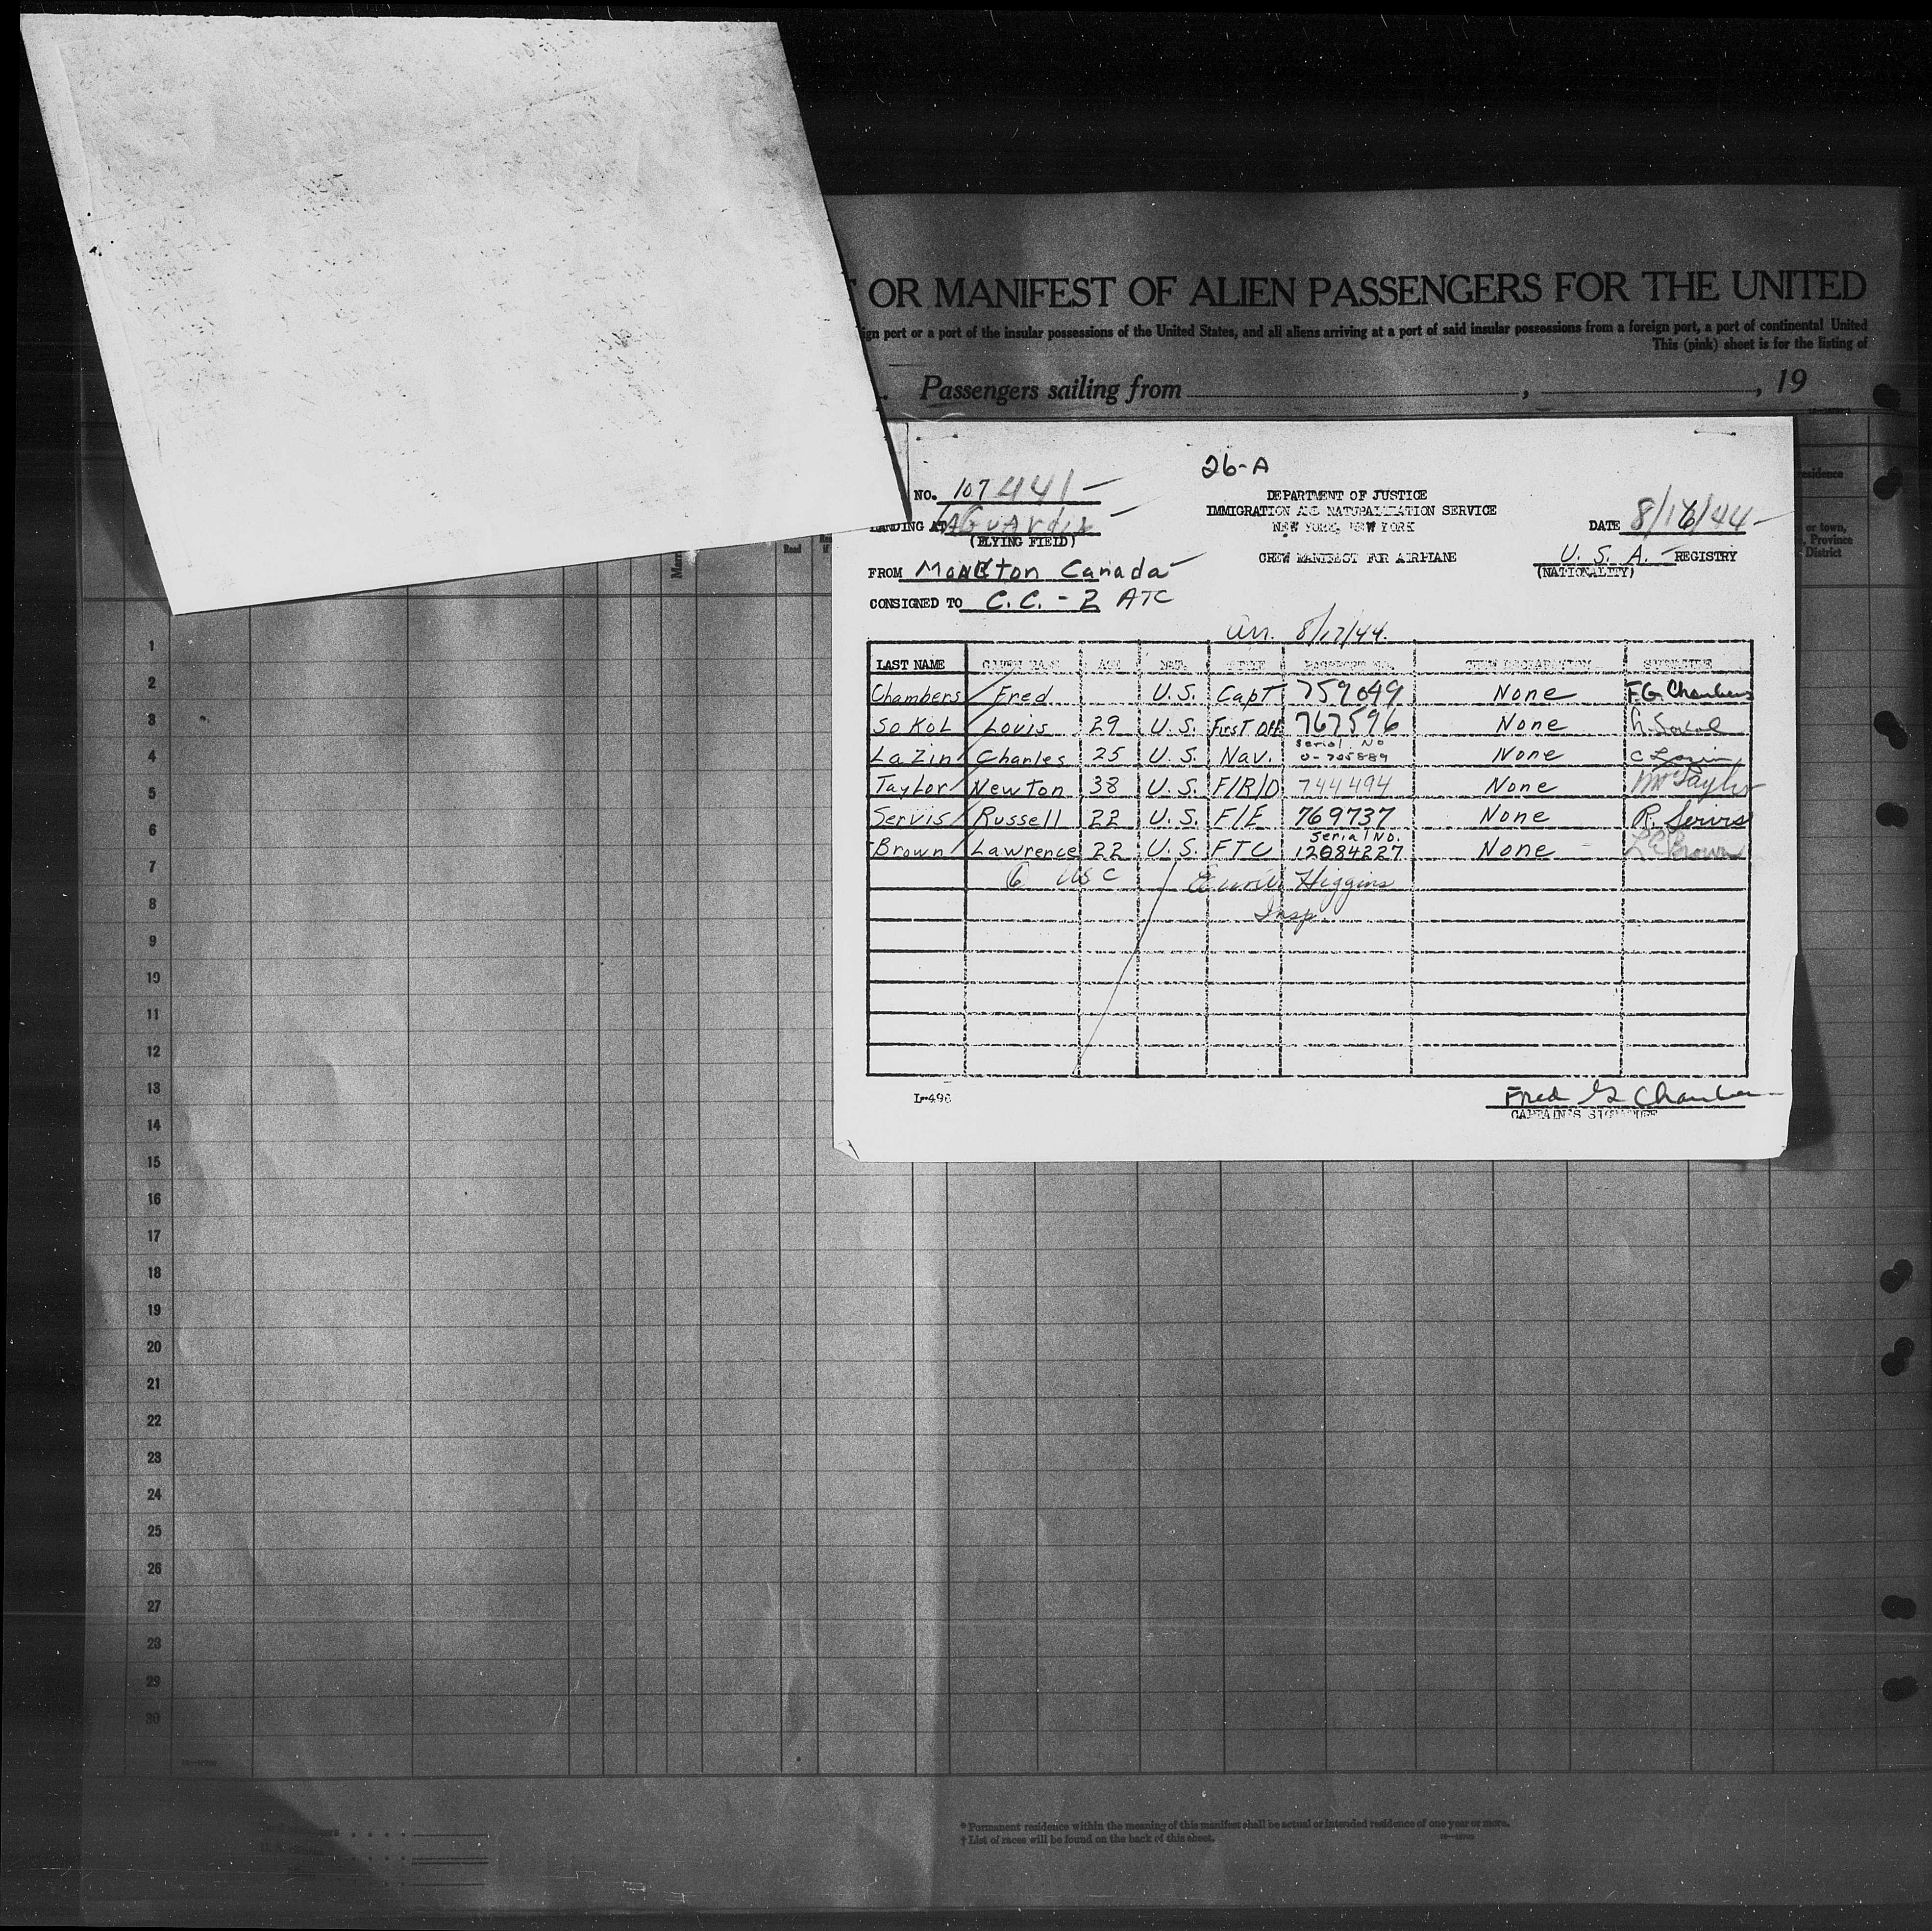 OR MANIFEST OF ALIEN PASSENGERS FOR THE UNITED
ign port or a port of the insular possessions of the United States, and all aliens arriving at a port of said insular possessions from a foreign port, a port of continental United
This (pink) sheet is for the listing of
Passengers sailing from , , 19
26-A
NO. 107441
DEPARTMENT OF JUSTICE
IMMIGRATION AND NATURALIZATION SERVICE
NEW YORK, NEW YORK
LANDING AT LaGuardia
(FLYING FIELD)
DATE 8/16/44
CREW MANIFEST FOR AIRPLANE
U. S. A. REGISTRY
(NATIONALITY)
FROM Moncton Canada
CONSIGNED TO C.C. - 2 ATC
arr. 8/17/44
LAST NAME GIVEN NAME AGE NAT. TITLE PASSPORT NO. CREW DECLARATION SIGNATURE
Chambers Fred U.S. Capt 759049 None F.G. Chambers
Sokol Louis 29 U.S. First Off 767596 None L. Sokol
Serial No
Lazin Charles 25 U.S. Nav. O-705889 None C Lazin
Taylor Newton 38 U.S. F/R/O 744494 None Taylor
Servis Russell 22 U.S. F/E 769737 None R. Servis
Serial No.
Brown Lawrence 22 U.S. FTC 12084227 None Brown
6 USC Higgins
Insp
L-496
Fred G Chambers
CAPTAIN'S SIGNATURE
esidence
or town,
, Province
District
Read
1
2
3
4
5
6
7
8
9
10
11
12
13
14
15
16
17
18
19
20
21
22
23
24
25
26
27
28
29
30
* Permanent residence within the meaning of this manifest shall be actual or intended residence of one year or more.
† List of races will be found on the back of this sheet.